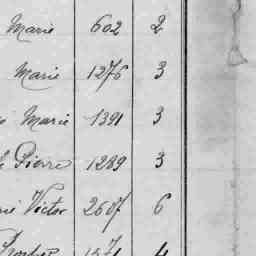 Marie 602 2
Marie 1276 3
Marie 1391 3
Pierre 1289 3
Victor 2607 6